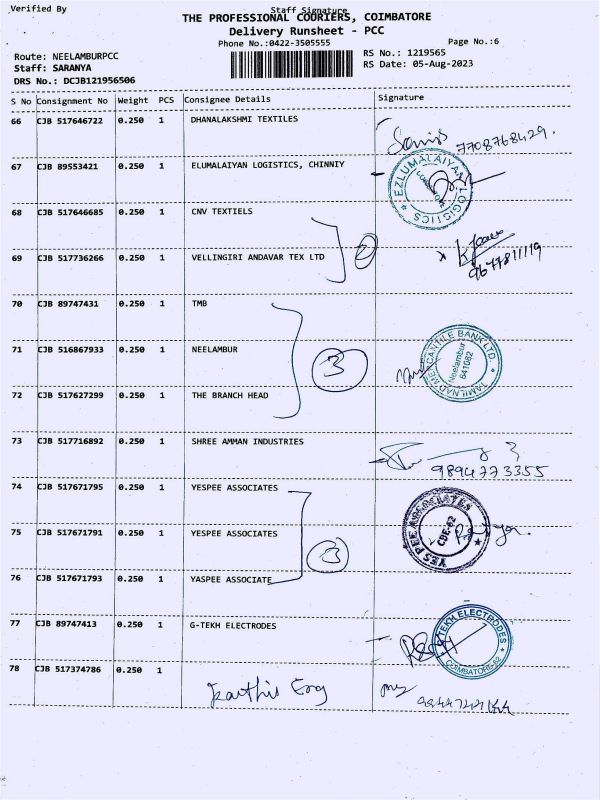 Verified By Staff Signature
THE PROFESSIONAL COURIERS, COIMBATORE
Delivery Runsheet - PCC
Phone No.:0422-3505555 Page No.:6
Route: NEELAMBURPCC RS No.: 1219565
Staff: SARANYA RS Date: 05-Aug-2023
DRS No.: DCJB121956506
S No Consignment No Weight PCS Consignee Details Signature
66 CJB 517646722 0.250 1 DHANALAKSHMI TEXTILES
7708768429.
67 CJB 89553421 0.250 1 ELUMALAIYAN LOGISTICS, CHINNIY
EZLUMALAIYAN LOGISTICS
68 CJB 517646685 0.250 1 CNV TEXTIELS
69 CJB 517736266 0.250 1 VELLINGIRI ANDAVAR TEX LTD
2
9677811119
70 CJB 89747431 0.250 1 TMB
71 CJB 516867933 0.250 1 NEELAMBUR
3
TAMILNAD MERCANTILE BANK LTD.
Neelambur
641062
72 CJB 517627299 0.250 1 THE BRANCH HEAD
73 CJB 517716892 0.250 1 SHREE AMMAN INDUSTRIES
9894773355
74 CJB 517671795 0.250 1 YESPEE ASSOCIATES
75 CJB 517671791 0.250 1 YESPEE ASSOCIATES
3
YES PEE ASSOCIATES
CBE-62
76 CJB 517671793 0.250 1 YASPEE ASSOCIATE
77 CJB 89747413 0.250 1 G-TEKH ELECTRODES
G-TEKH ELECTRODES
COIMBATORE-62
78 CJB 517374786 0.250 1
Karthis Eng